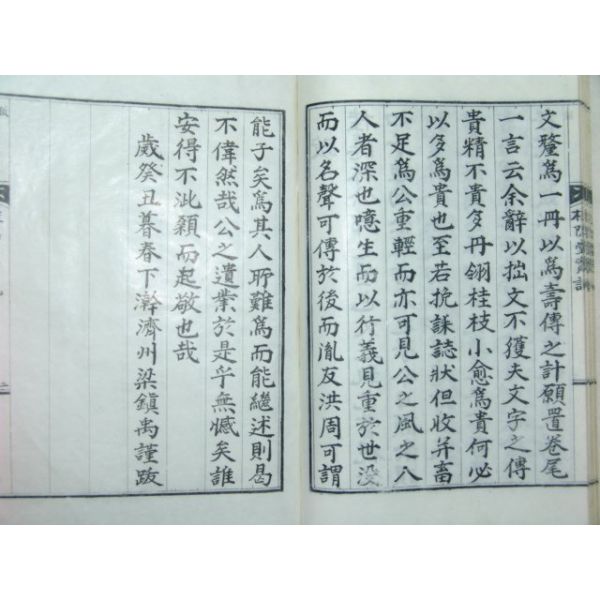 文釐爲一冊以爲壽傳之計願置卷尾
一言云余辭以拙文不獲夫文字之傳
貴精不貴多丹翎桂枝小愈爲貴何必
以多爲貴也至若挽誄誌狀但收并畜
不足爲公重輕而亦可見公之風之入
人者深也噫生而以行義見重於世沒
而以名聲可傳於後而胤友洪周可謂
能子矣爲其人所難爲而能繼述則曷
不偉然哉公之遺業於是乎無憾矣誰
安得不泚顙而起敬也哉
歲癸丑暮春下澣濟州梁鎭禹謹跋